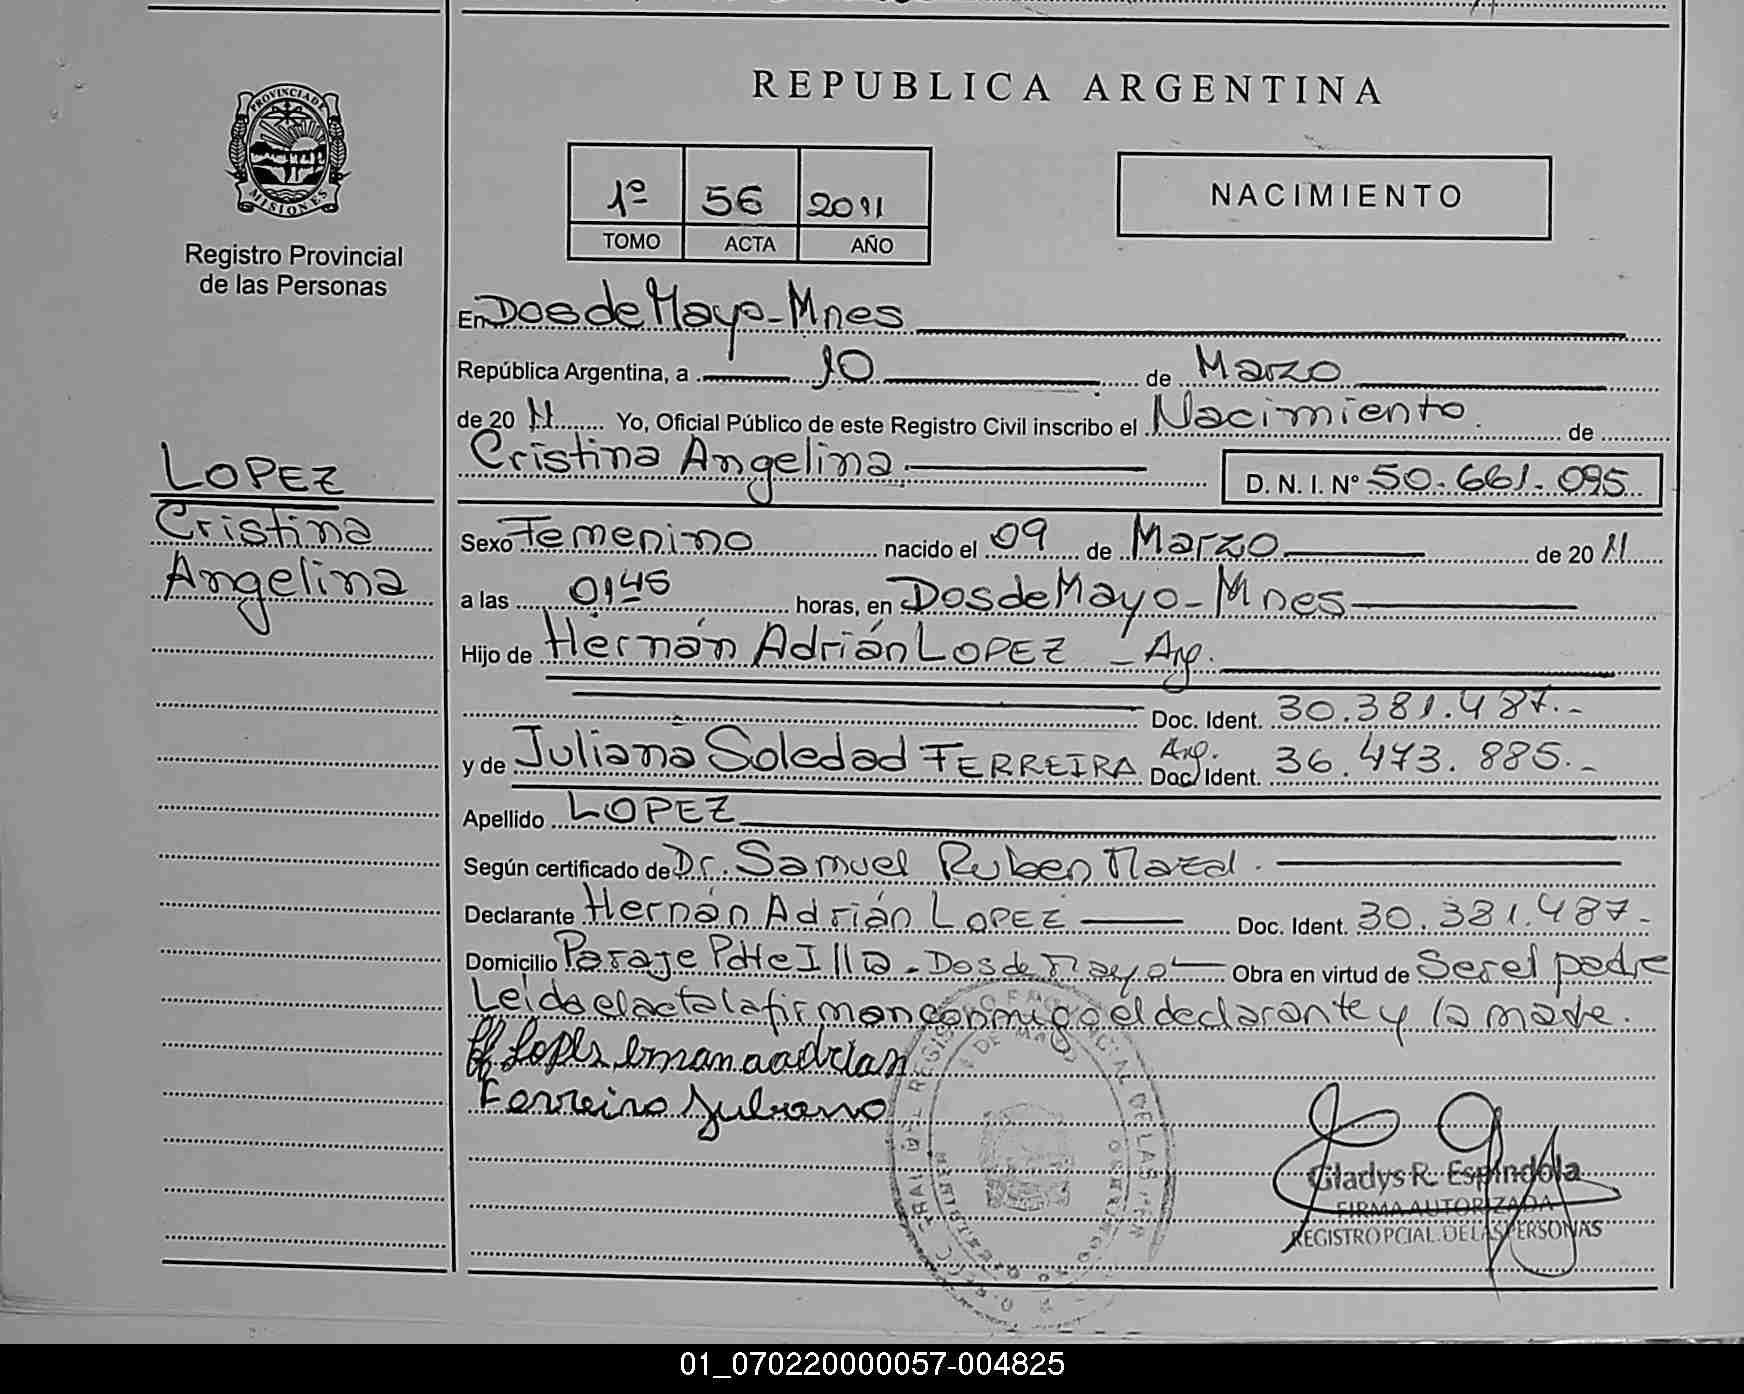 REPUBLICA ARGENTINA
PROVINCIA DE
MISIONES
Registro Provincial
de las Personas
1º 56 2011
TOMO ACTA AÑO
NACIMIENTO
LOPEZ
Cristina
Angelina
En Dos de Mayo - Mnes
República Argentina, a 10 de Marzo
de 20 11 Yo, Oficial Público de este Registro Civil inscribo el Nacimiento de
Cristina Angelina. D. N. I. Nº 50.661.095
Sexo Femenino nacido el 09 de Marzo de 20 11
a las 0145 horas, en Dos de Mayo - Mnes
Hijo de Hernán Adrián LOPEZ - Arg.
Doc. Ident. 30.381.487.-
y de Juliana Soledad FERREIRA Arg. Doc. Ident. 36.473.885.-
Apellido LOPEZ
Según certificado de Dr. Samuel Ruben Mazal.
Declarante Hernán Adrián LOPEZ Doc. Ident. 30.381.487-
Domicilio Paraje Pdte Illia - Dos de Mayo - Obra en virtud de Ser el padre
Leida el acta la firman conmigo el declarante y la madre.
Lopes ernan aadrian
Ferreira Juliana
Gladys R. Espindola
FIRMA AUTORIZADA
REGISTRO PCIAL. DE LAS PERSONAS
01_070220000057-004825